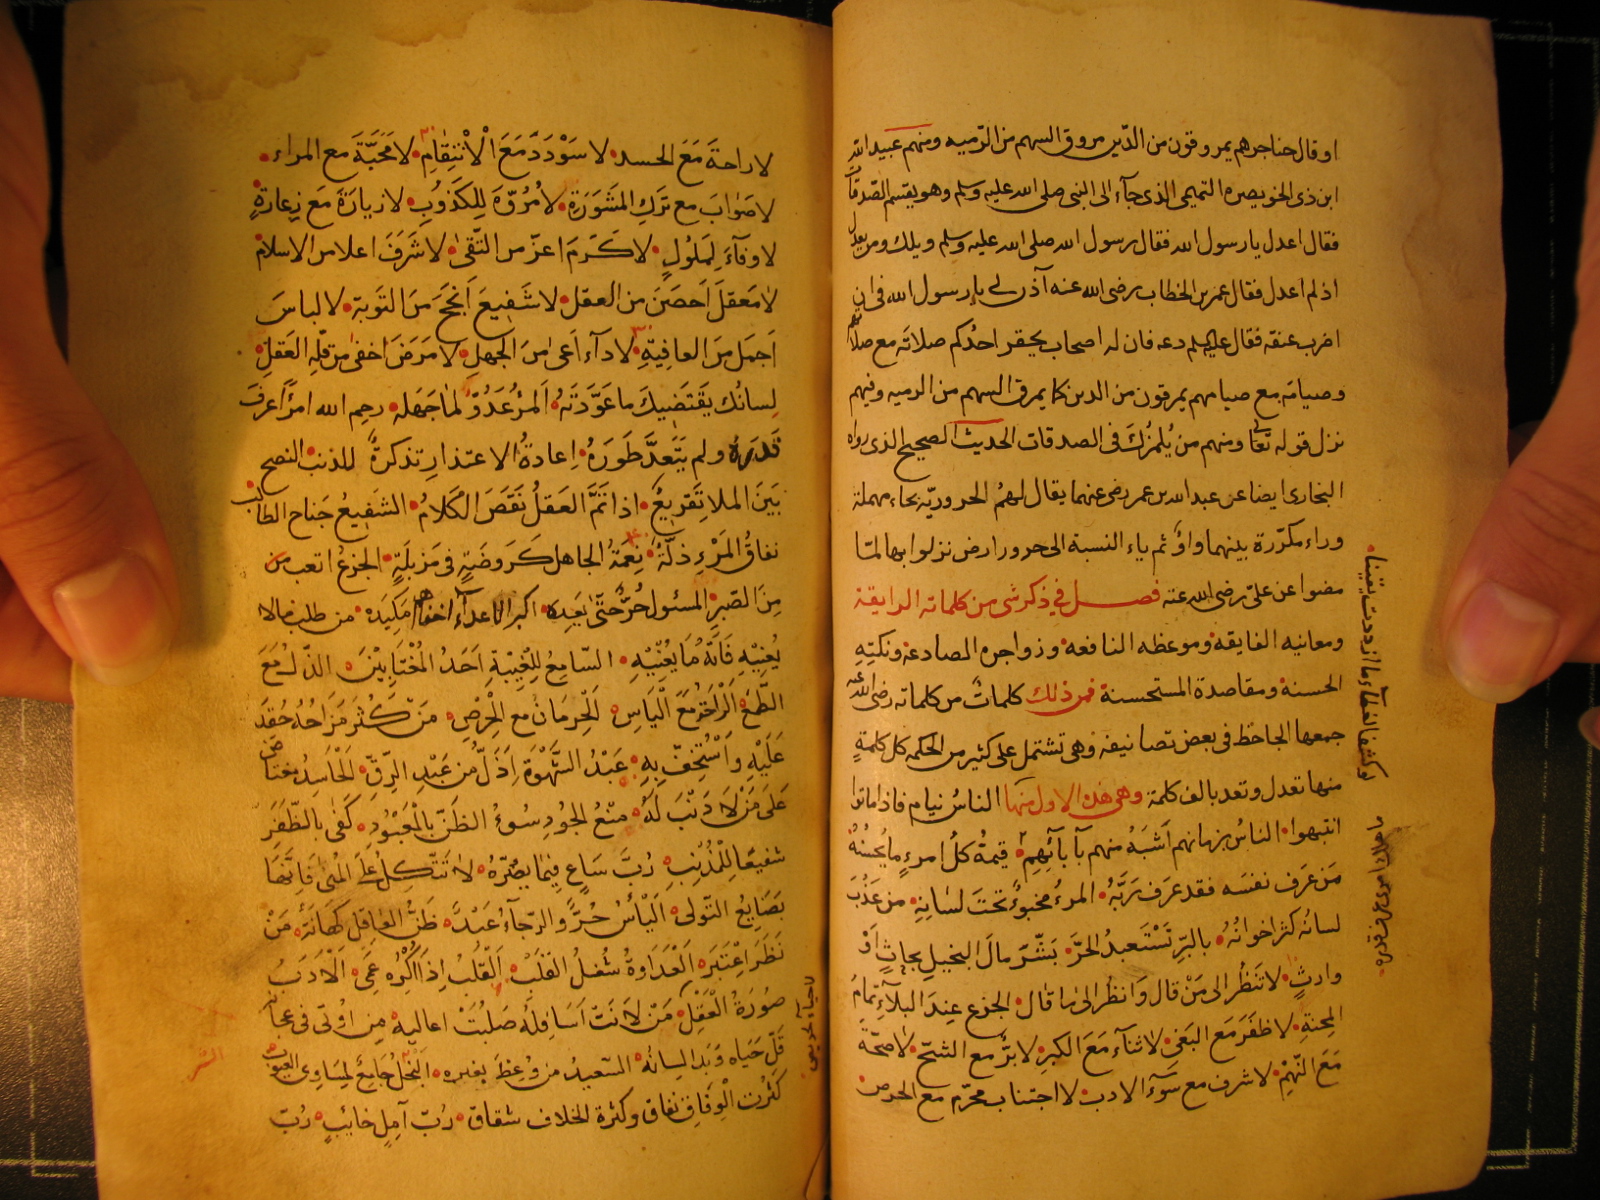 او قال حناجرهم يمروقون من الدّين مروق السهم من الرّميه ومنهم عبيد الله
ابن ذى الخويصره التميمى الذى جآء الى النبى صلى الله عليه وسلم وهو يقسم الصّدقات
فقال اعدل يا رسول الله فقال رسول الله صلى الله عليه وسلم ويلك ومن يعدل
اذ لم اعدل فقال عمر بن الخطاب رضى الله عنه آذن لى يا رسول الله فى ان
اضرب عنقه فقال عليه السلم دعه فان له اصحاب يحقر احدُكم صلاتَه مع صلاتهم
وصيامَه مع صيامهم يمرقون من الدين كما يمرق السهم من الرميه وفيهم
نزل قوله تعالى ومنهم من يُلمزك فى الصدقات الحديث الصحيح الذى رواه
البخارى ايضا عن عبد الله بن عمر رضى عنهما يقال لهمُ الحروريّه بحاء مهملة
وراء مكرّرة بينهما واوٌ ثم ياء النسبة الى حرورا ارض نزلوا بها لمّا
مضوا عن علىّ رضى الله عنه فصل في ذكر شى من كلماته الرايقة
ومعانيه الفايقه وموعظه النافعه وزواجره الصادعه ونكتِهِ
الحسنة ومقاصدة المستحسنة فمن ذلك كلماتٌ من كلماته رضى الله عنه
جمعها الجاحظ فى بعض تصانيفه وهى تشتمل على كثير من الحكمه كل كلمةٍ
منها تعدل وتعد بالف كلمة وهى هذه الاول منها الناسُ نيام فاذا ماتوا
انتبهوا الناسُ بزمانهم اَشبَهُ منهم بآبآئِهِم قيمةُ كل امرءٍ ما يُحسُنُهُ
مَن عَرف نفسَه فقد عَرف رَبَّهُ المرءُ مخبوءٌ تحتَ لسانِهِ من عَذُبَ
لسانُه كثر اخوانُهُ بالبِرِّ تَسْتعبدُ الحرَّ بَشّر مالَ البخيلِ بحادثٍ اَوْ
وارثٍ لا تنظُر الى مَنْ قال وَانظر الى ما قال الجزع عِندَ البلآءِ تمامُ
المِحنةِ لا ظفَر مَعَ البغى لا ثنآءَ مَعَ الكبرِ لا بِرَّ مع الشحّ لا صحّةَ
مَعَ النَّهَمْ لا شرف مع سَوء الادب لا اجتناب محرّم مع الحرص
لو كشف الغطآء ما ازددت يقينا
ما هلك امرءٌ عرف قدره
لا راحةَ مَعَ الحسد لا سَوْدَدَ مَعَ الْاِنْتِقَامِ لا مَحَبَّةَ مع المراء
لا صَوَابَ مع تَركِ المَشَورَةِ لا مُرُوّةَ لِلكَذُوبِ لا زيارَةَ مَعَ زعارةٍ
لا وفآءَ لِمَلُولٍ لا كَرَمَ اعزّ من التّقى لا شَرَفَ اعلا من الاسلام
لا مَعقلَ اَحصَنَ من العقل لا شَفِيعَ اَنجَحَ مَنَ التَوبَةِ لا لباسَ
اَجملَ مِنَ العافِيَةِ لا دآءَ اَعى مِنَ الجَهلِ لا مَرَضَ اَخفى من قِلّةِ العَقلِ
لِسانُك يَقتَضِيكَ ما عَوَّدَتَهُ اَلمَرْءُ عَدُوٌّ لما جَهله رحِم الله امرًا عرفَ
قَدَرهُ ولم يَتَعدَّ طَورَهُ اِعادةُ الاعتذارِ تذكرةٌ للذنب النصح
بَينَ الملاء تَقرِيعٌ اذا تَمَّ العَقلُ نَقَصَ الكَلامُ الشَفِيعُ جَناح الطالب
نفاقُ المَرْءِ ذلّةٌ نِعمَةُ الجاهل كَرَوضَةٍ فى مَزبلَةٍ الجزعُ اتعب من
مِنَ الصَبرِ المسئول حُرٌّ حتَّى يَعِدَ اكبر الاعدآء اخفاهم مَكيَدة من طلب مالا
يُعنِيهِ فَاتَهُ مَا يُعْنِيْهِ السّامِعُ لِلْغَيْبَةِ اَحَدُ المُغْتَابِيْنَ الذّلُ مَعَ
الطّمَع الرّاحَةُ مَعَ الْيَاسِ اَلحِرمَانُ مع الحِرْصِ مَنْ كَثُرَ مَزاحُهُ حُقِدَ
عَلَيْهِ وَاسْتُخِفَّ بِهِ عَبْدُ الشَّهْوَةِ اَذَلُّ مِن عَبْدِ الرِّقّ اَلحَاسِدُ مغتاض
عَلى مَنْ لا ذَنْبَ لَهُ مَنْعُ الجُودِ سوءُ الظَّنِّ بِالْمَعبُودِ كَفَى بالظَّفَرِ
شفيعًا للِمُذْنِبِ رُبَّ سَاعٍ فِيمَا يضُرّهُ لا تَتَّكِلْ عَلَى المُنى فَاِنَّهَا
بَضَايِعُ النَّولى اَليَأسُ حُرٌّ والرّجآءُ عَبْدٌ ظَنُّ العاقلِ كَهَانةٌ مَنْ
نَظَرَ اعْتَبَرَ اَلْعَدَاوةُ شُغلُ القَلْبِ اَلْقَلبُ اِذَا اُكْرِهَ عَمِىَ الْاَدَبُ
صُورَةُ الْعَقْلِ مَنْ لَانَتْ اَسَافِلُهُ صَلُبَتْ اعاليه مِن اُوتى فى عجانه
قَلّ حَيَاه وَبَدا لِسَانُه السّعيدُ من وُعِظَ بغيره اَلبُخْلُ جَامِعٌ لمسَاوى العيوب
كثْرت الْوِفَاقِ نفاق وكثرة الخلاف شقاق رُبَّ آمِلٍ خائبٍ رُبّ
لا حيآء لحريص